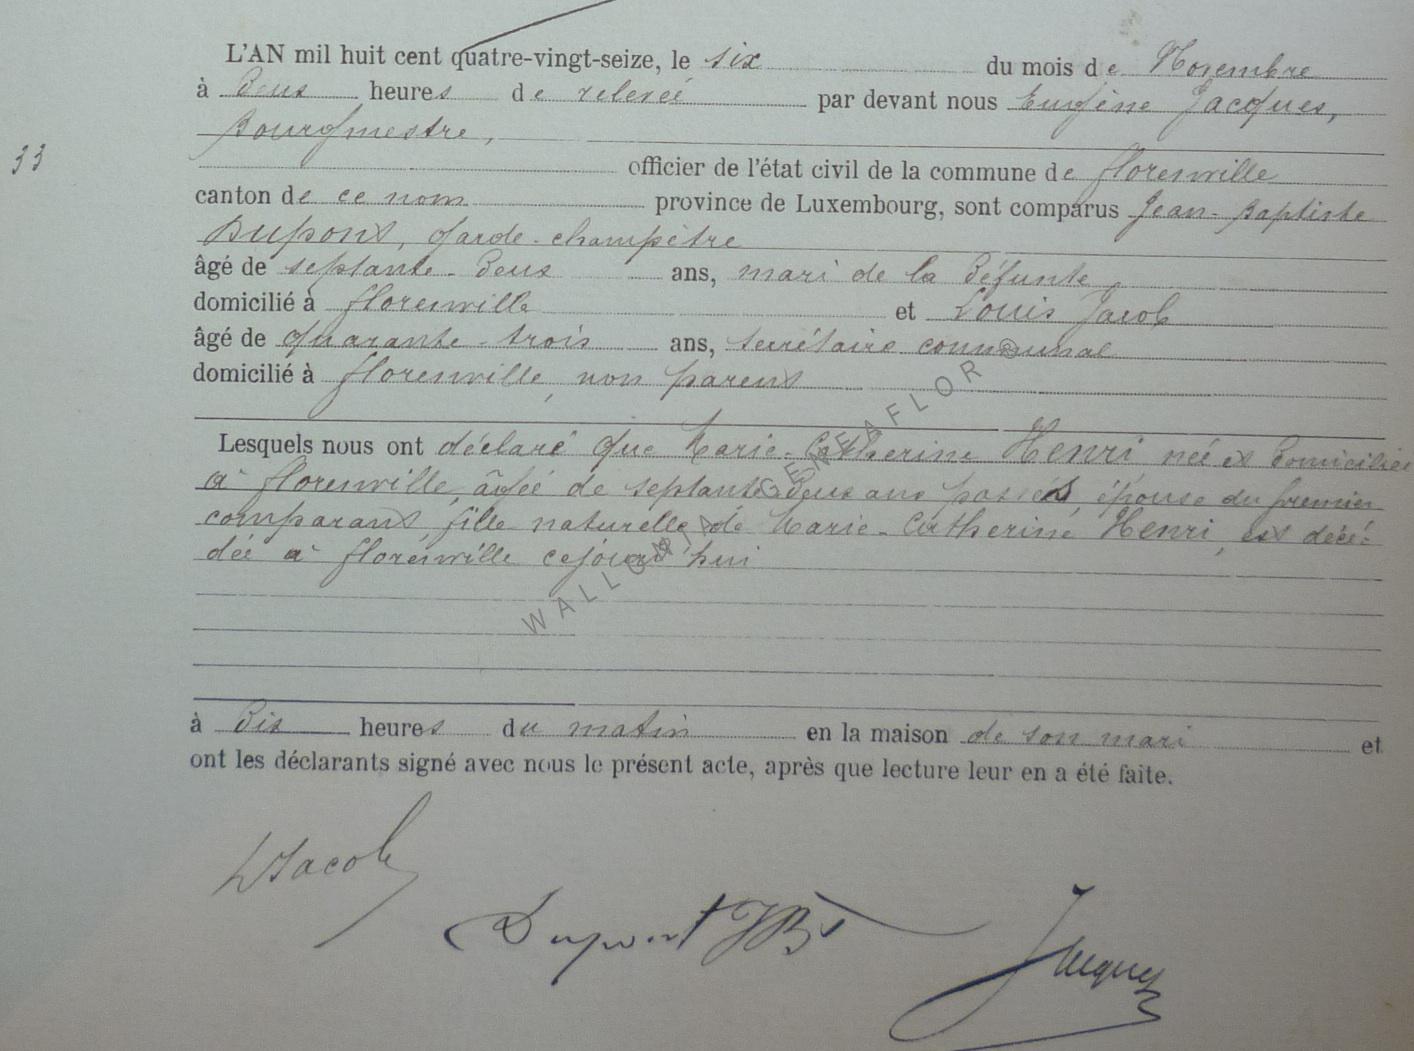 L'AN mil huit cent quatre-vingt-seize, le six du mois de Novembre
à deux heures de relevée par devant nous Eugène Jacques,
Bourgmestre,
33
officier de l'état civil de la commune de florenville
canton de ce nom province de Luxembourg, sont comparus Jean-Baptiste
Dupont, garde-champêtre
âgé de septante-deux ans, mari de la défunte,
domicilié à florenville et Louis Jacob
âgé de quarante-trois ans, secrétaire communal
domicilié à florenville, non parent
Lesquels nous ont déclaré que Marie-Catherine Henri née et domiciliée
à florenville, âgée de septante-deux ans passés, épouse du premier
comparant, fille naturelle de Marie-Catherine Henri, est décé-
dée à florenville cejourd'hui
à dix heures du matin en la maison de son mari et
ont les déclarants signé avec nous le présent acte, après que lecture leur en a été faite.
LJacob
Dupont JBt
Jacques
WALLONIA GENEAFLOR ©